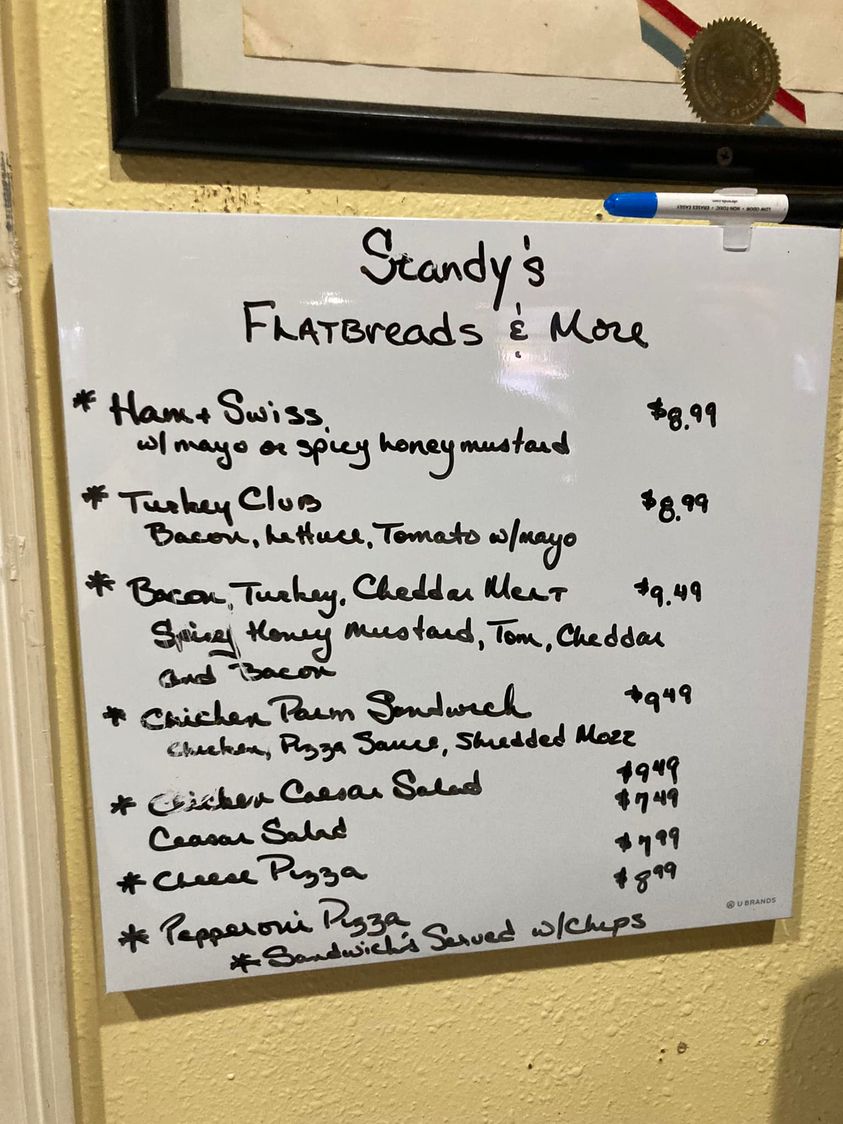 LOW ODOR • NON-TOXIC • ERASES EASILY
Standy's
FLATBreads & More
* Ham + Swiss $8.99
w/ mayo or spicy honey mustard
* Turkey Club $8.99
Bacon, Lettuce, Tomato w/mayo
* Bacon, Turkey, Cheddar Melt $9.49
Spicey Honey Mustard, Tom, Cheddar
and Bacon
* Chicken Parm Sandwich $9.49
Chicken, Pizza Sauce, Shredded Mozz
* Chicken Caesar Salad $9.49
Ceasar Salad $7.49
* Cheese Pizza $7.99
* Pepperoni Pizza $8.99
* Sandwich's Served w/Chips
U BRANDS